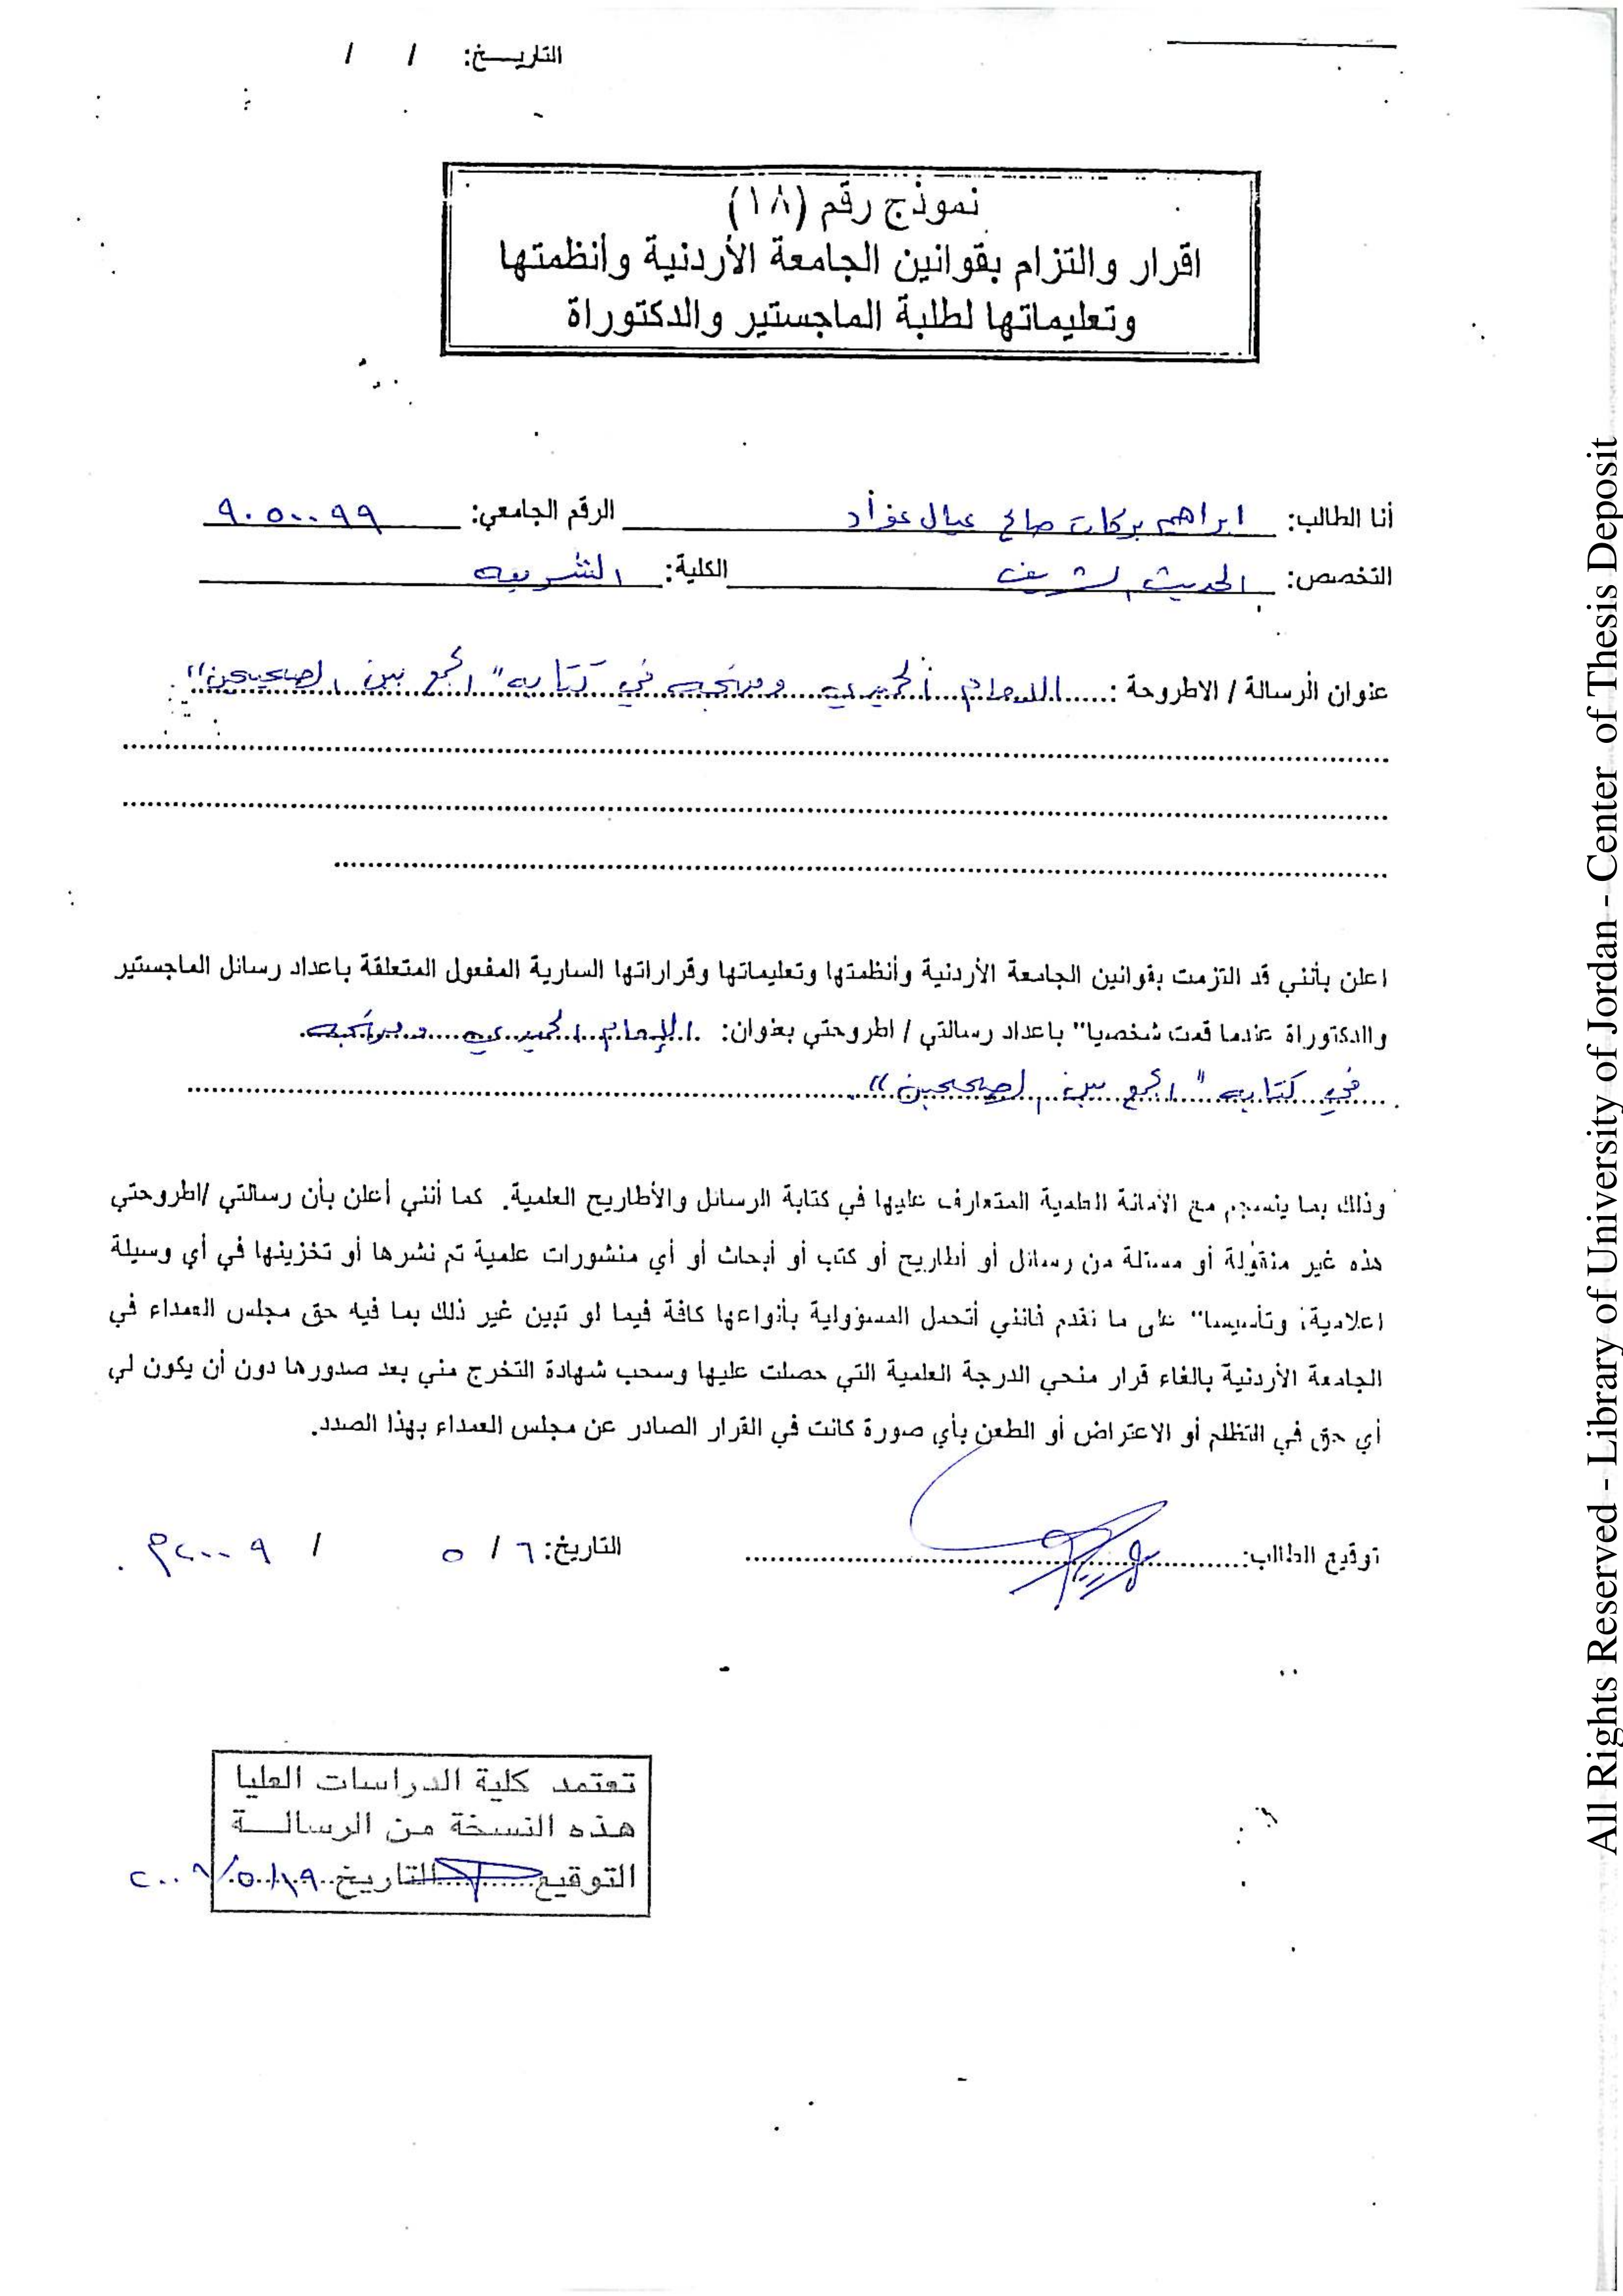 التاريـــخ: / /
نموذج رقم (١٨)
اقرار والتزام بقوانين الجامعة الأردنية وأنظمتها
وتعليماتها لطلبة الماجستير والدكتوراة
أنا الطالب: ابراهيم بركات صالح عيال عواد الرقم الجامعي: ٩٠٥٠٠٩٩
التخصص: الحديث الشريف الكلية: الشريعه
عنوان الرسالة / الاطروحة : الامام الحميدي ومنهجه في كتابه "الجمع بين الصحيحين"
اعلن بأنني قد التزمت بقوانين الجامعة الأردنية وأنظمتها وتعليماتها وقراراتها السارية المفعول المتعلقة باعداد رسائل الماجستير
والدكتوراة عندما قمت شخصيا" باعداد رسالتي / اطروحتي بعنوان: الإمام الحميدي ومنهجه
في كتابه "الجمع بين الصحيحين"
وذلك بما ينسجم مع الأمانة العلمية المتعارف عليها في كتابة الرسائل والأطاريح العلمية. كما أنني أعلن بأن رسالتي /اطروحتي
هذه غير منقولة أو مستلة من رسائل أو أطاريح أو كتب أو أبحاث أو أي منشورات علمية تم نشرها أو تخزينها في أي وسيلة
اعلامية، وتأسيسا" على ما تقدم فانني أتحمل المسؤولية بأنواعها كافة فيما لو تبين غير ذلك بما فيه حق مجلس العمداء في
الجامعة الأردنية بالغاء قرار منحي الدرجة العلمية التي حصلت عليها وسحب شهادة التخرج مني بعد صدورها دون أن يكون لي
أي حق في التظلم أو الاعتراض أو الطعن بأي صورة كانت في القرار الصادر عن مجلس العمداء بهذا الصدد.
توقيع الطالب: التاريخ: ٦ / ٥ / ٢٠٠٩م.
تعتمد كلية الدراسات العليا
هذه النسخة من الرسالـــة
التوقيع التاريخ ١٩/٥/٢٠٠٩
All Rights Reserved - Library of University of Jordan - Center of Thesis Deposit